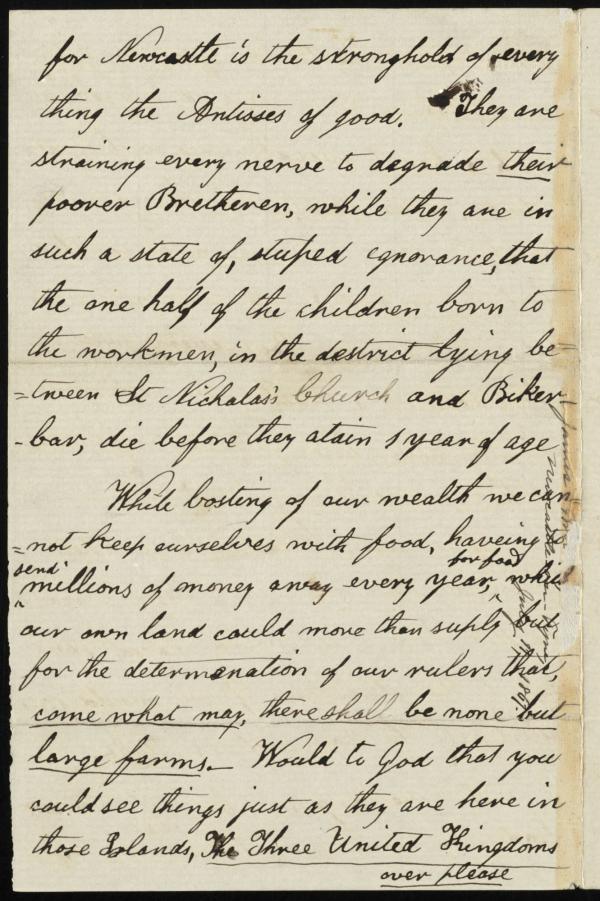 for Newcastle is the stronghold of every
thing the Antisses of good. They are
straining every nerve to degrade their
poorer Bretheren, while they are in
such a state of, stuped ignorance, that
the one half of the children born to
the workmen, in the destrict lying be=
=tween St Nicholas's Church and Biker-
-bar, die before they atain 1 year of age
While bosting of our wealth we can-
=not keep ourselves with food, haveing
send for food
millions of money away every year, while
our own land could more then suply but
for the determenation of our rulers that,
come what may, there shall be none but
large farms. Would to God that you
could see things just as they are here in
those Islands, The Three United Kingdoms
over please
James
Newcastle on Tyne
July